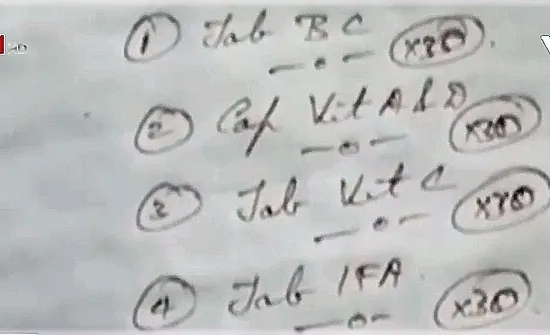 ① Tab B C (x30).
— o —
② Cap Vit A & D (x30)
— o —
③ Tab Vit C (x30)
— o —
④ Tab IFA (x30)
— o —